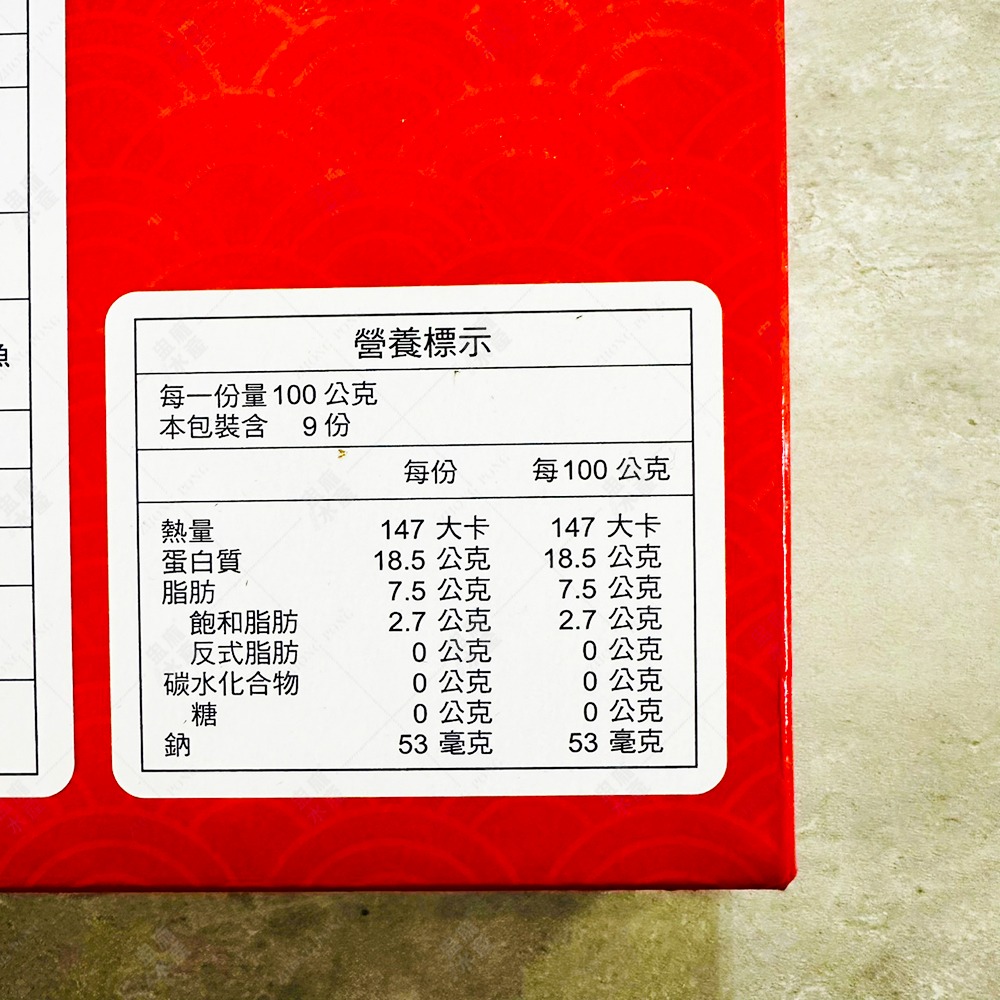 魚
營養標示
每一份量100 公克
本包裝含 9 份
每份 每100 公克
熱量 147 大卡 147 大卡
蛋白質 18.5 公克 18.5 公克
脂肪 7.5 公克 7.5 公克
飽和脂肪 2.7 公克 2.7 公克
反式脂肪 0 公克 0 公克
碳水化合物 0 公克 0 公克
糖 0 公克 0 公克
鈉 53 毫克 53 毫克